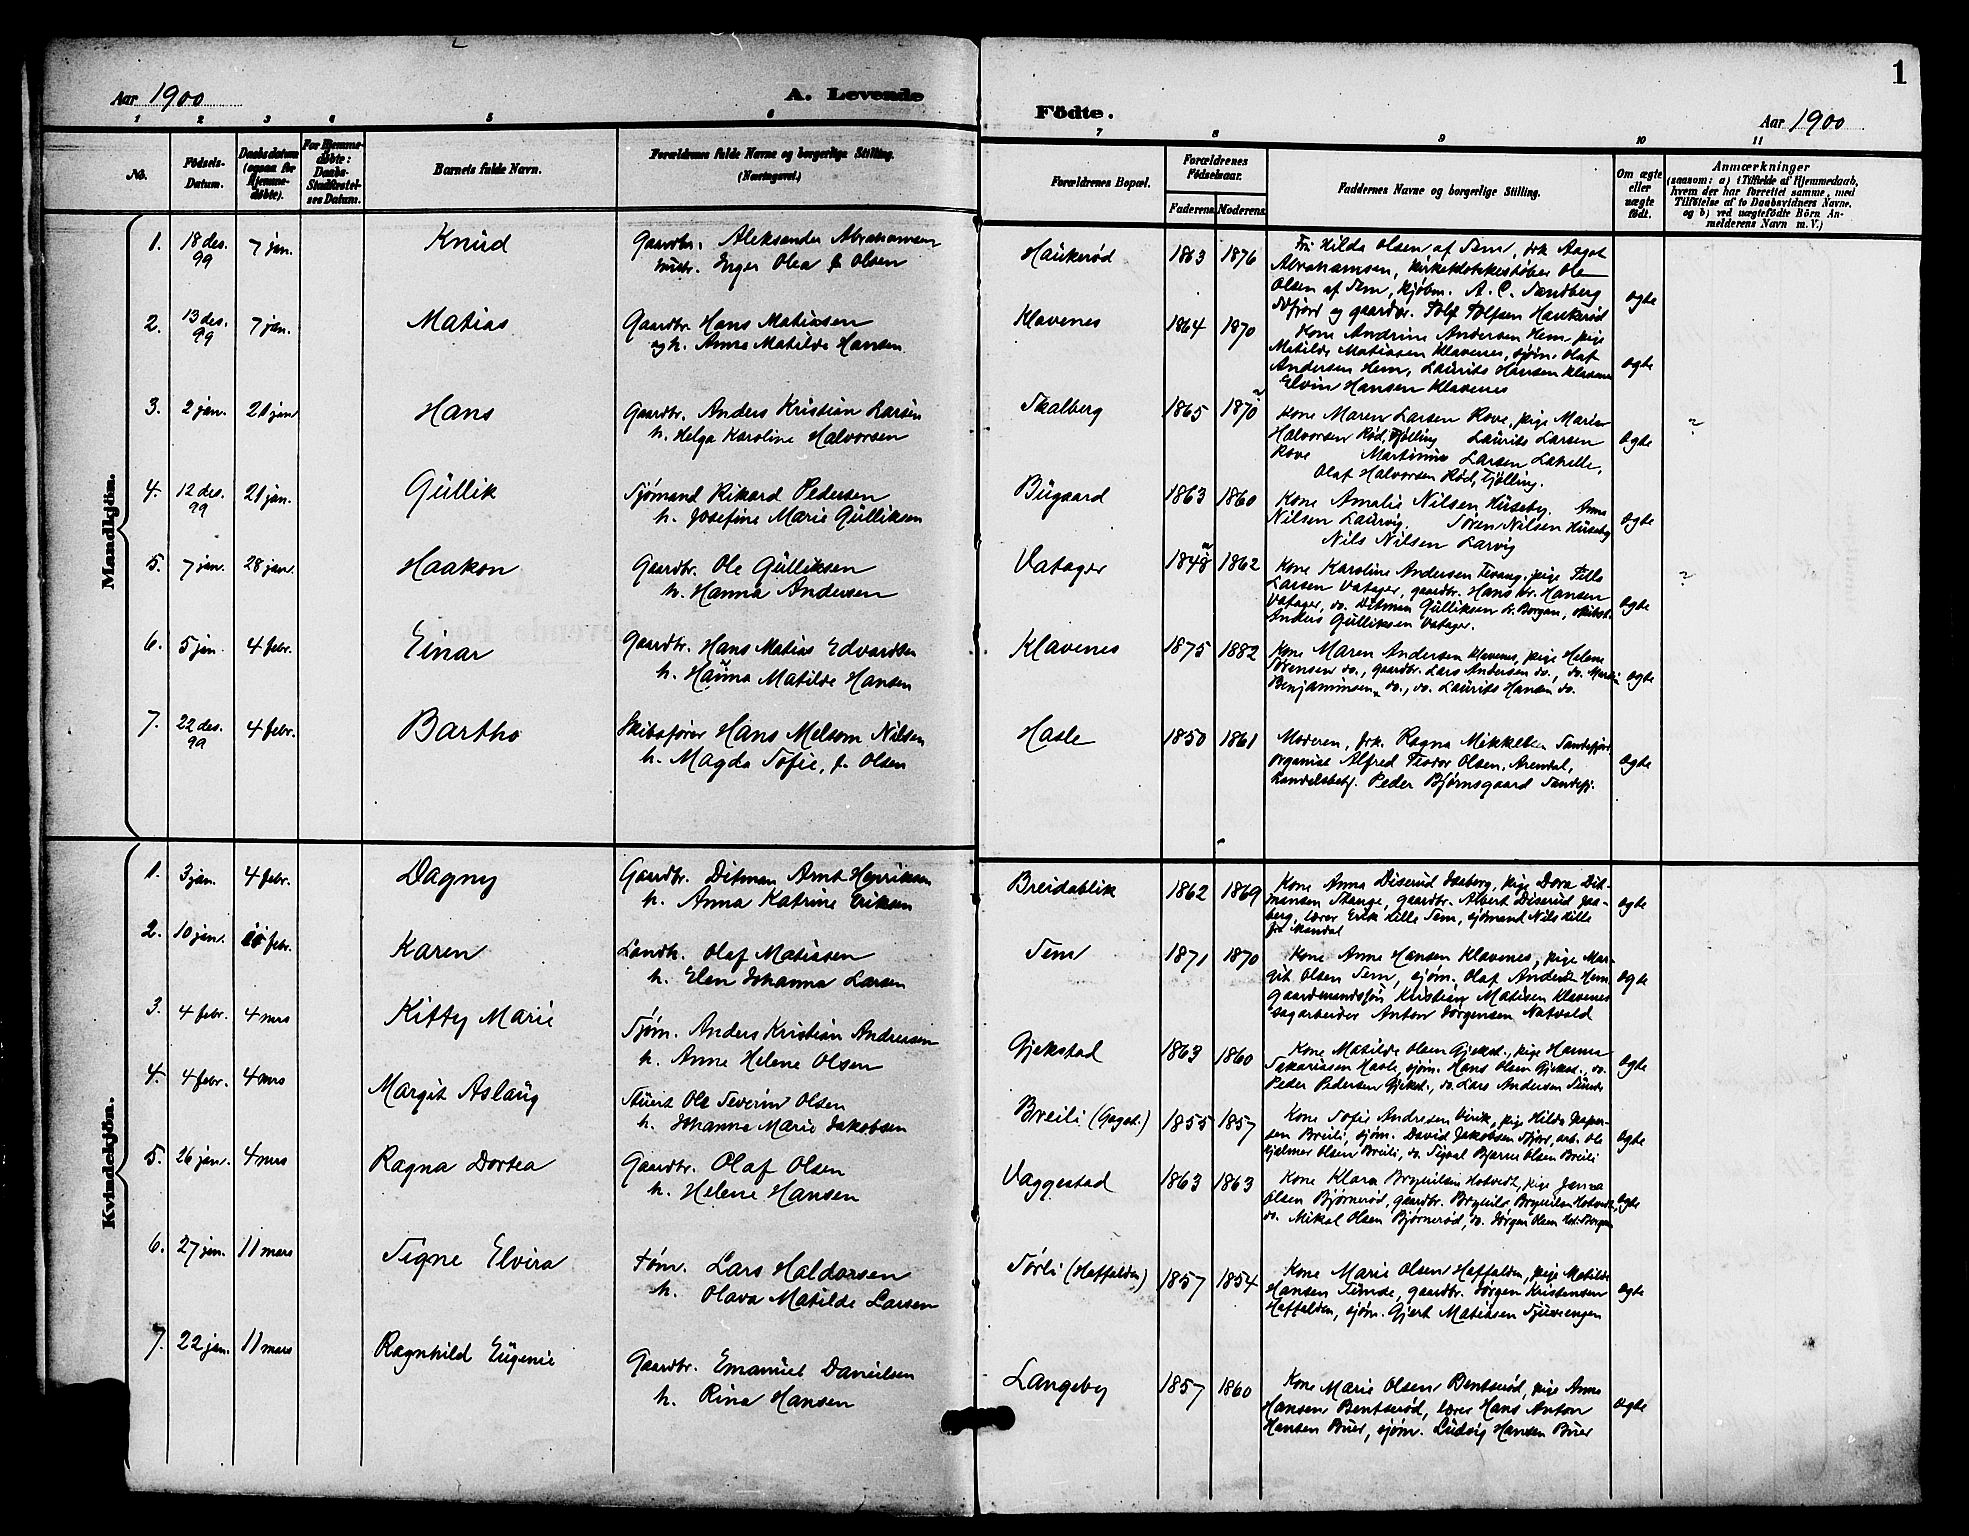 Aar 1900
A. Levende
Födte.
Aar 1900
1
1 2 3 4 5 6 7 8 9 10 11
No.
Födsels-
Datum.
Daabsdatum
(ogsaa for
Hjemme-
døbte).
For Hjemme-
døbte:
Daabs-
Stadfæstel-
ses Datum.
Barnets fulde Navn.
Forældrenes fulde Navne og borgerlige Stilling.
Forældrenes Bopæl.
Forældrenes
Födselsaar.
Faderens. Moderens.
Faddernes Navne og borgerlige Stilling.
Om ægte
eller
uægte
født.
Anmærkninger
(saasom: a) i Tilfælde af Hjemmedaab,
hvem der har forrettet samme, med
Tilföielse af to Daabsvidners Navne,
og b) ved uægtefödte Börn An-
melderens Navn m. V.)
Mandkjön.
1. 18 des. 99 7 jan. Knud
Gaardbr. Aleksander Abrahamsen
hustr. Inger Olea f. Olsen
Haukerød 1863 1876
Fru Hilda Olsen af Sem, frk Aagot
Abrahamsen, kirkeklokkestøber Ole
Olsen af Sem, kjøbm. A. C. Sandberg
Sdfjord og gaardbr. Rolf Rolfsen Haukerød
ægte
2. 13 des. 99 7 jan. Matias
Gaardbr. Hans Matiassen
og h. Anna Matilde Hansen
Klavenes 1864 1870
Kone Andrine Andersen Hem, pige
Matilde Matiassen Klavenes, sjøm. Olaf
Andersen Hem, Laurits Hansen Klavenes
Elvin Hansen Klavenes
ægte
3. 2 jan. 21 jan Hans
Gaardbr. Anders Kristian Larsen
h. Helga Karoline Halvorsen
Skalberg 1865 1870 ?
Kone Maren Larsen Rove, pige Marie
Halvorsen Rød, Tjølling Laurits Larsen
Rove Martinius Larsen
Olaf Halvorsen Rød, Tjølling.
ægte ?
4. 12 des. 99 21 jan. Gullik
Sjømand Rikard Pedersen
h. Josefine Marie Gulliksen
Bugaard 1863 1860
Kone Amalie Nilsen Huseby. Anne
Nilsen Laurvig. Søren Nilsen Huseby
Nils Nilsen Larvig
ægte
5. 7 jan. 28 jan. Haakon
Gaardbr. Ole Gulliksen
h. Hanna Andersen
Vatager 1848 1862
Kone Karoline Andersen Tevang, pige Tilla
Larsen Vatager, gaardbr. Hans Kr. Hansen
Vatager, do. Ditman Gulliksen Borgan,
Anders Gulliksen Vatager.
ægte ?
6. 5 jan. 4 febr. Einar
Gaardbr. Hans Matias Edvardsen
h. Hanna Matilde Hansen
Klavenes 1875 1882
Kone Maren Andersen Klavenes, pige Helene
Sørensen do., gaardbr. Lars Andersen do., do. Martin
Benjaminsen do., do. Laurits Hansen do.
ægte
7. 22 des. 99 4 febr. Bartho
Skibsfører Hans Melsom Nilsen
h. Magda Sofie, f. Olsen
Hasle 1850 1861
Moderen, frk. Ragna Mikkelsen Sandefjord
organist Alfred Teodor Olsen, Arendal,
handelsbetj. Peder Bjørnsgaard Sandefj.
ægte
Kvindekjön.
1. 3 jan. 4 febr. Dagny
Gaardbr. Ditman Arnt Henriksen
h. Anna Katrine Eriksen
Breidablik 1862 1869
Kone Anna Diserud Jaaberg, pige Dora Dit-
mansen Stange, gaardbr. Albert Diserud Jaa-
berg, lærer Erik Lille Sem, sjømand Nils Lille
fra Mandal
ægte
2. 10 jan. febr. Karen
Landh. Olaf Matiasen
h. Elen Johanna Larsen
Sem 1871 1870
Kone Anne Hansen Klavenes, pige Mar-
git Olsen Sem, sjøm. Olaf Anders. Hem
gaardmandssøn Kristian Matisen Klavenes
sagarbeider Anton Jørgensen Natvald
ægte
3. 4 febr. 4 mrs Kitty Marie
Sjøm. Anders Kristian Andresen
h. Anne Helene Olsen
Gjekstad 1863 1860
Kone Matilde Olsen Gjekst., pige Hanna
Sakariasen Hasle, sjøm. Hans Olsen Gjekst., do.
Peder Pedersen Gjekst., do. Lars Andersen Sunde
ægte
4. 4 febr. 4 mrs Margit Aslaug
Stuert Ole Severin Olsen
h. Johanna Marie Jakobsen
Breili (Gogst.) 1855 1857
Kone Sofie Andresen Virik, pige Hilda Kasper-
sen Breili, sjøm. David Jakobsen Fjære, arb. Ole
Hjalmer Olsen Breili, do. Sigval Bjarne Olsen Breili
ægte
5. 26 jan. 4 mrs Ragna Dortea
Gaardbr. Olaf Olsen
h. Helene Hansen
Vaggestad 1863 1863
Kone Klara Brynilsen Hotvedt, pige Janna
Olsen Bjørnerød, gaardbr. Brynild Brynilsen Hotvedt,
do. Mikal Olsen Bjørnerød, do. Jørgen Olsen
ægte
6. 27 jan. 11 mars Signe Elvira
tøm. Lars Haldorsen
h. Olava Matilde Larsen
Sørli (Haffalden) 1857 1854
Kone Marie Olsen Haffalden, pige Matilde
Hansen Sunde, gaardbr. Jørgen Kristensen
Haffalden, sjøm. Gjert Matiasen Tjuvenengen
ægte
7. 22 jan. 11 mars Ragnhild Eugenie
Gaardbr. Emanuel Danielsen
h. Rina Hansen
Langeby 1857 1860
Kone Marie Olsen Bentserød, pige Anna
Hansen Bentserød, lærer Hans Anton
Hansen Buer, sjøm. Ludvig Hansen Buer
ægte